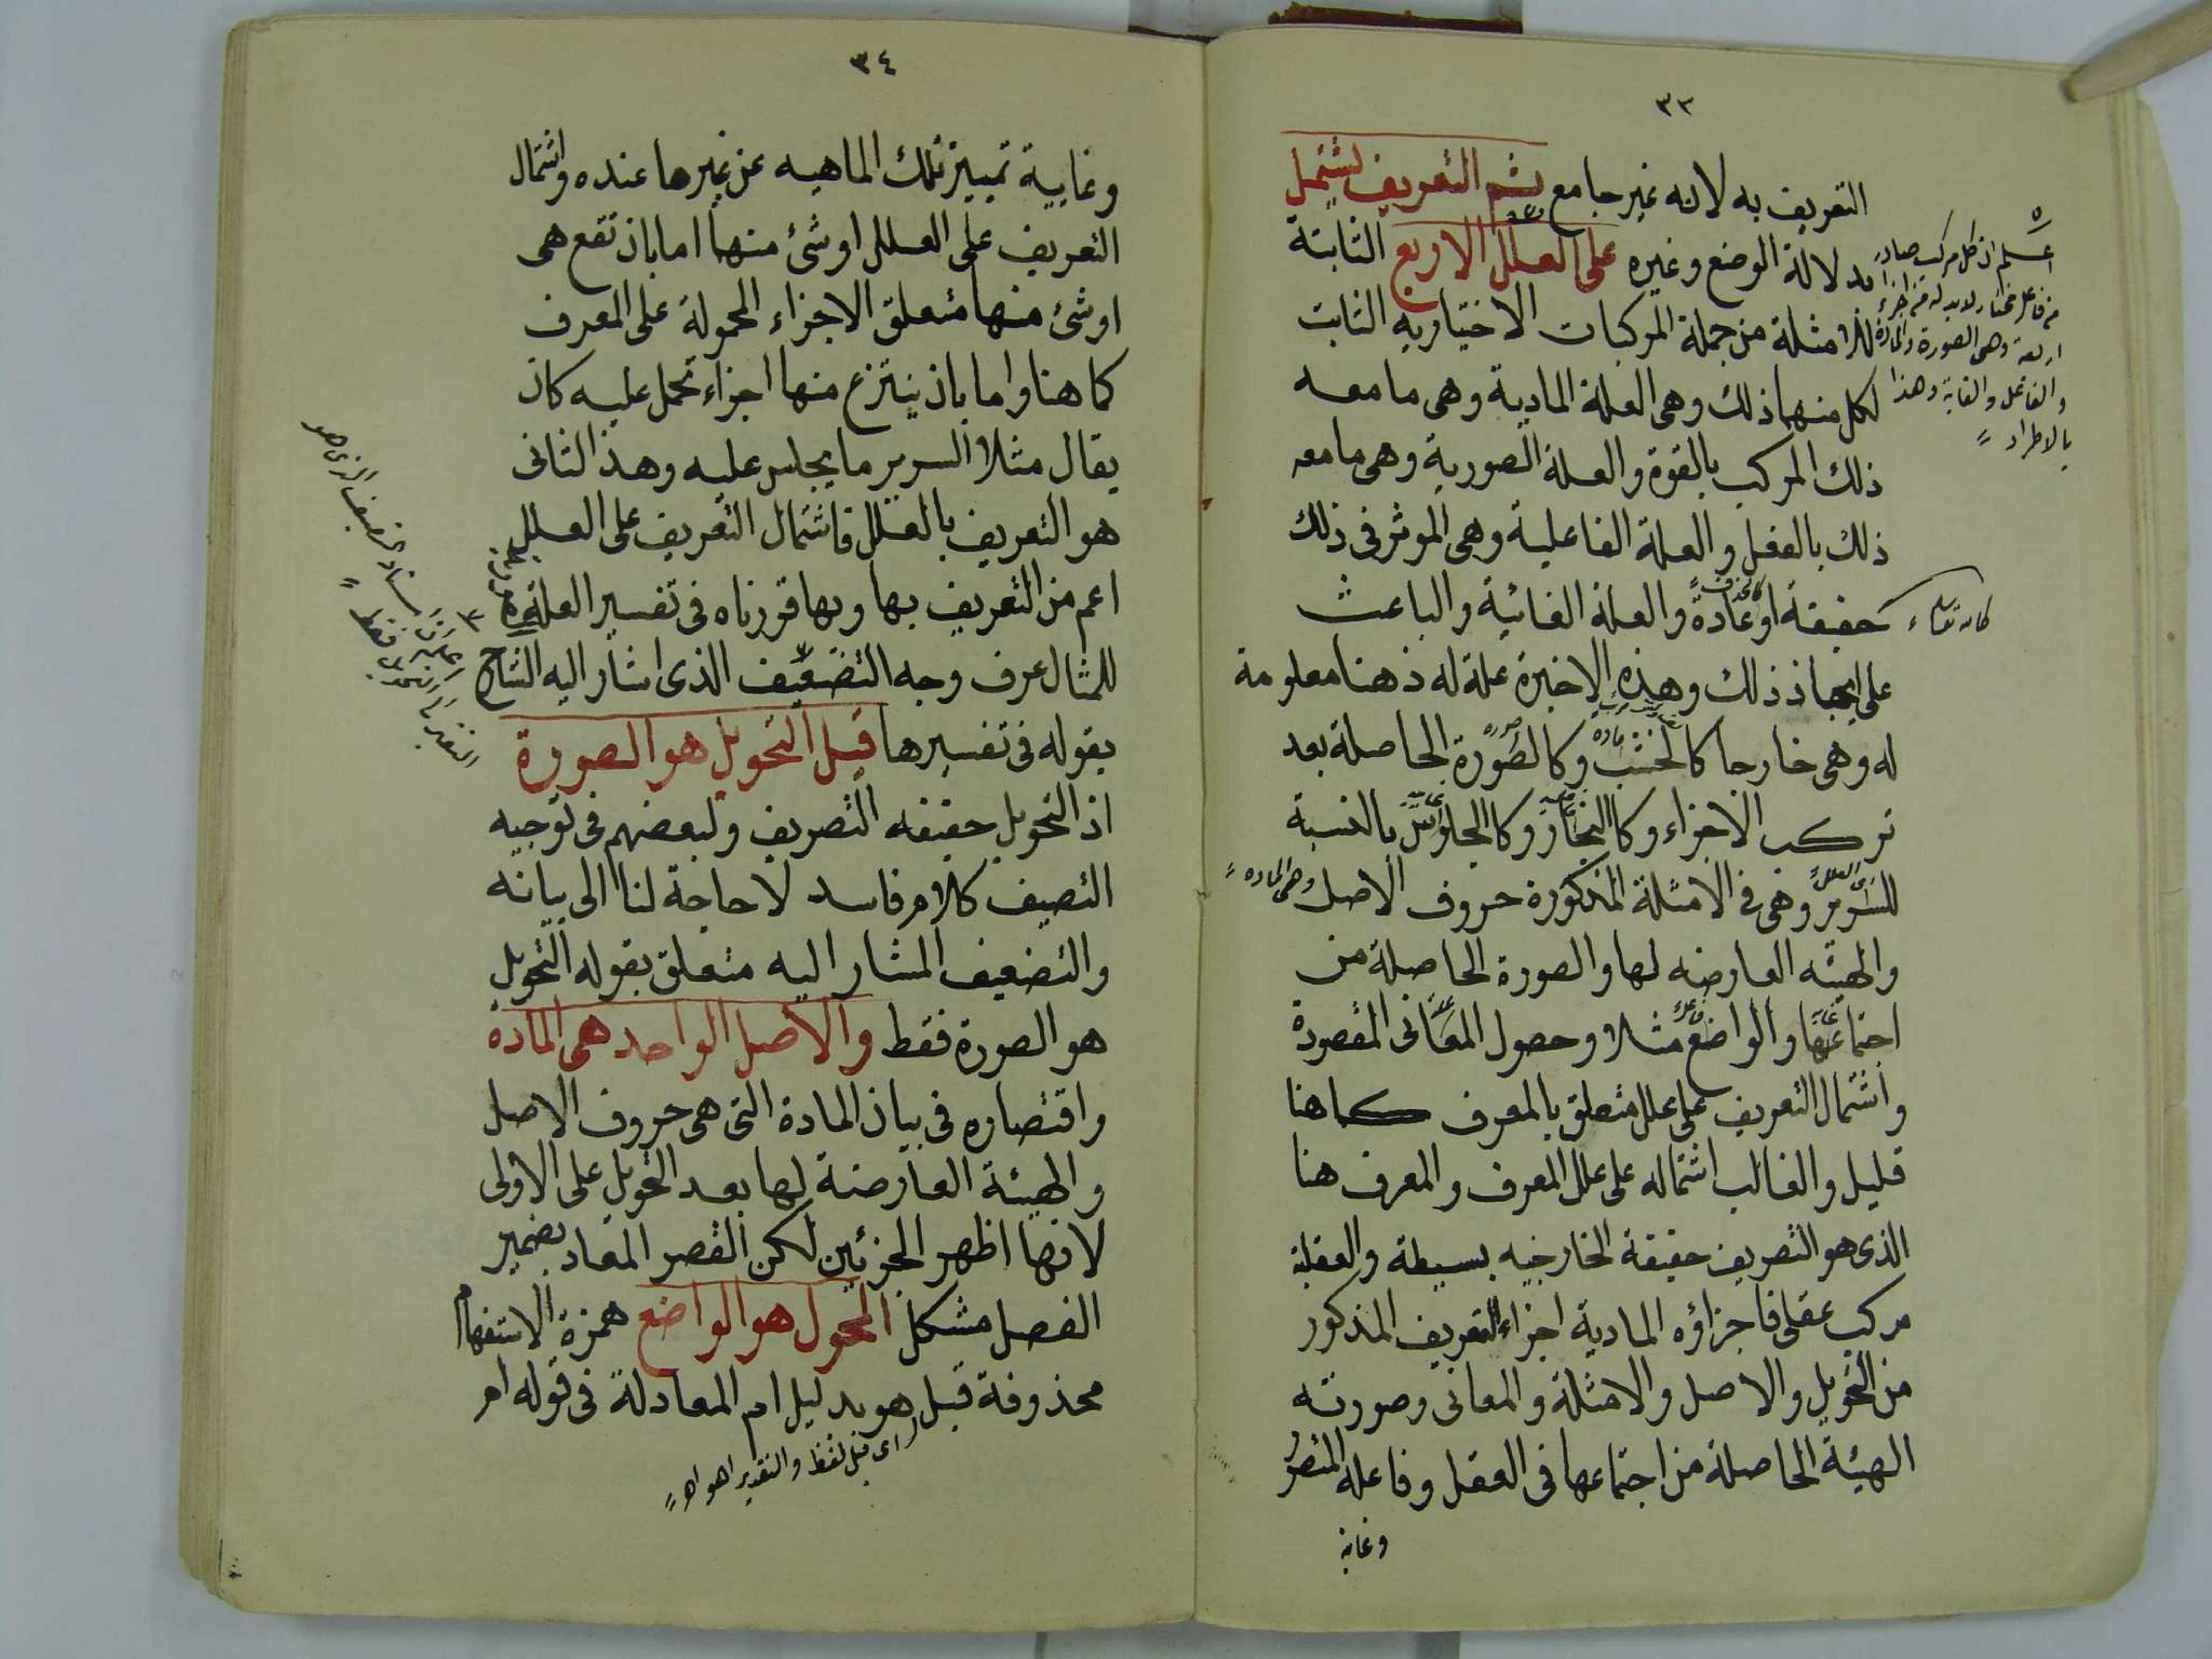 ٣٣
التعريف به لانه غير جامع ثم التعريف يشتمل
بدلالة الوضع وغيره على العلل الاربع الثابتة
للامثلة من جملة المركبات الاختياريه الثابت
لكل منها ذلك وهى العلة المادية وهى ما معه
ذلك المركب بالقوة والعلة الصورية وهى ما معه
ذلك بالفعل والعلة الفاعلية وهى الموثر فى ذلك
حقيقة او عادة والعلة الغائية والباعث
على ايجاد ذلك وهذه الاخيرة علة له ذهنا معلومة
له وهى خارجا كالخشب وكالصورة الحاصلة بعد
تركب الاجزاء وكالنجار وكالجلوس بالنسبة
للسرير وهى فى الامثلة المذكورة حروف الاصل وهى الماده
والهيئه العارضه لها والصورة الحاصلة من
اجتماعها والواضع مثلا وحصول المعانى المقصودة
واشتمال التعريف على علل متعلق بالمعرف كما هنا
قليل والغالب اشتماله على علل المعرف والمعرف هنا
الذى هو التصريف حقيقة الخارجيه بسيطة والعقلية
مركب عقلى فاجزاؤه المادية اجزاء التعريف المذكور
من التحويل والاصل والامثلة والمعانى وصورته
الهيئة الحاصلة من اجتماعها فى العقل وفاعله المتصرف
وغاية
اعلم ان كل مركب صادر
من فاعل مختار لابد له من اجزاء
اربعة وهى الصورة والمادة
والفاعل والغاية وهذا
بالاطراد
كالله تعالى
٣٤
وغايية تمييز تلك الماهيه عن غيرها عنده واشتمال
التعريف على العلل او شئ منها اما بان تقع هى
او شئ منها متعلق الاجزاء المحمولة على المعرف
كما هنا واما بان ينتزع منها اجزاء تحمل عليه كان
يقال مثلا السرير ما يجلس عليه وهذا الثانى
هو التعريف بالعلل فاشتمال التعريف على العلل
اعم من التعريف بها وبما قررناه فى تفسير العلة
للمثال عرف وجه التضعيف الذى اشار اليه الشارح
بقوله فى تفسيرها قيل التحويل هو الصورة
اذ التحويل حقيقه التصريف ولبعضهم فى توجيه
التصيف كلام فاسد لا حاجة لنا الى بيانه
والتضعيف المشار اليه متعلق بقوله التحويل
هو الصورة فقط والاصل الواحد هى المادة
واقتصاره فى بيان المادة التى هى حروف الاصل
والهيئة العارضة لها بعد التحويل على الاولى
لانها اظهر الجزئين لكن القصر المفاد بضمير
الفصل مشكل المحول هو الواضع همزة الاستفهام
محذوفة قبل هو بدليل ام المعادلة فى قوله ام
اى قبل لفظ والتقدير اهو اهـ